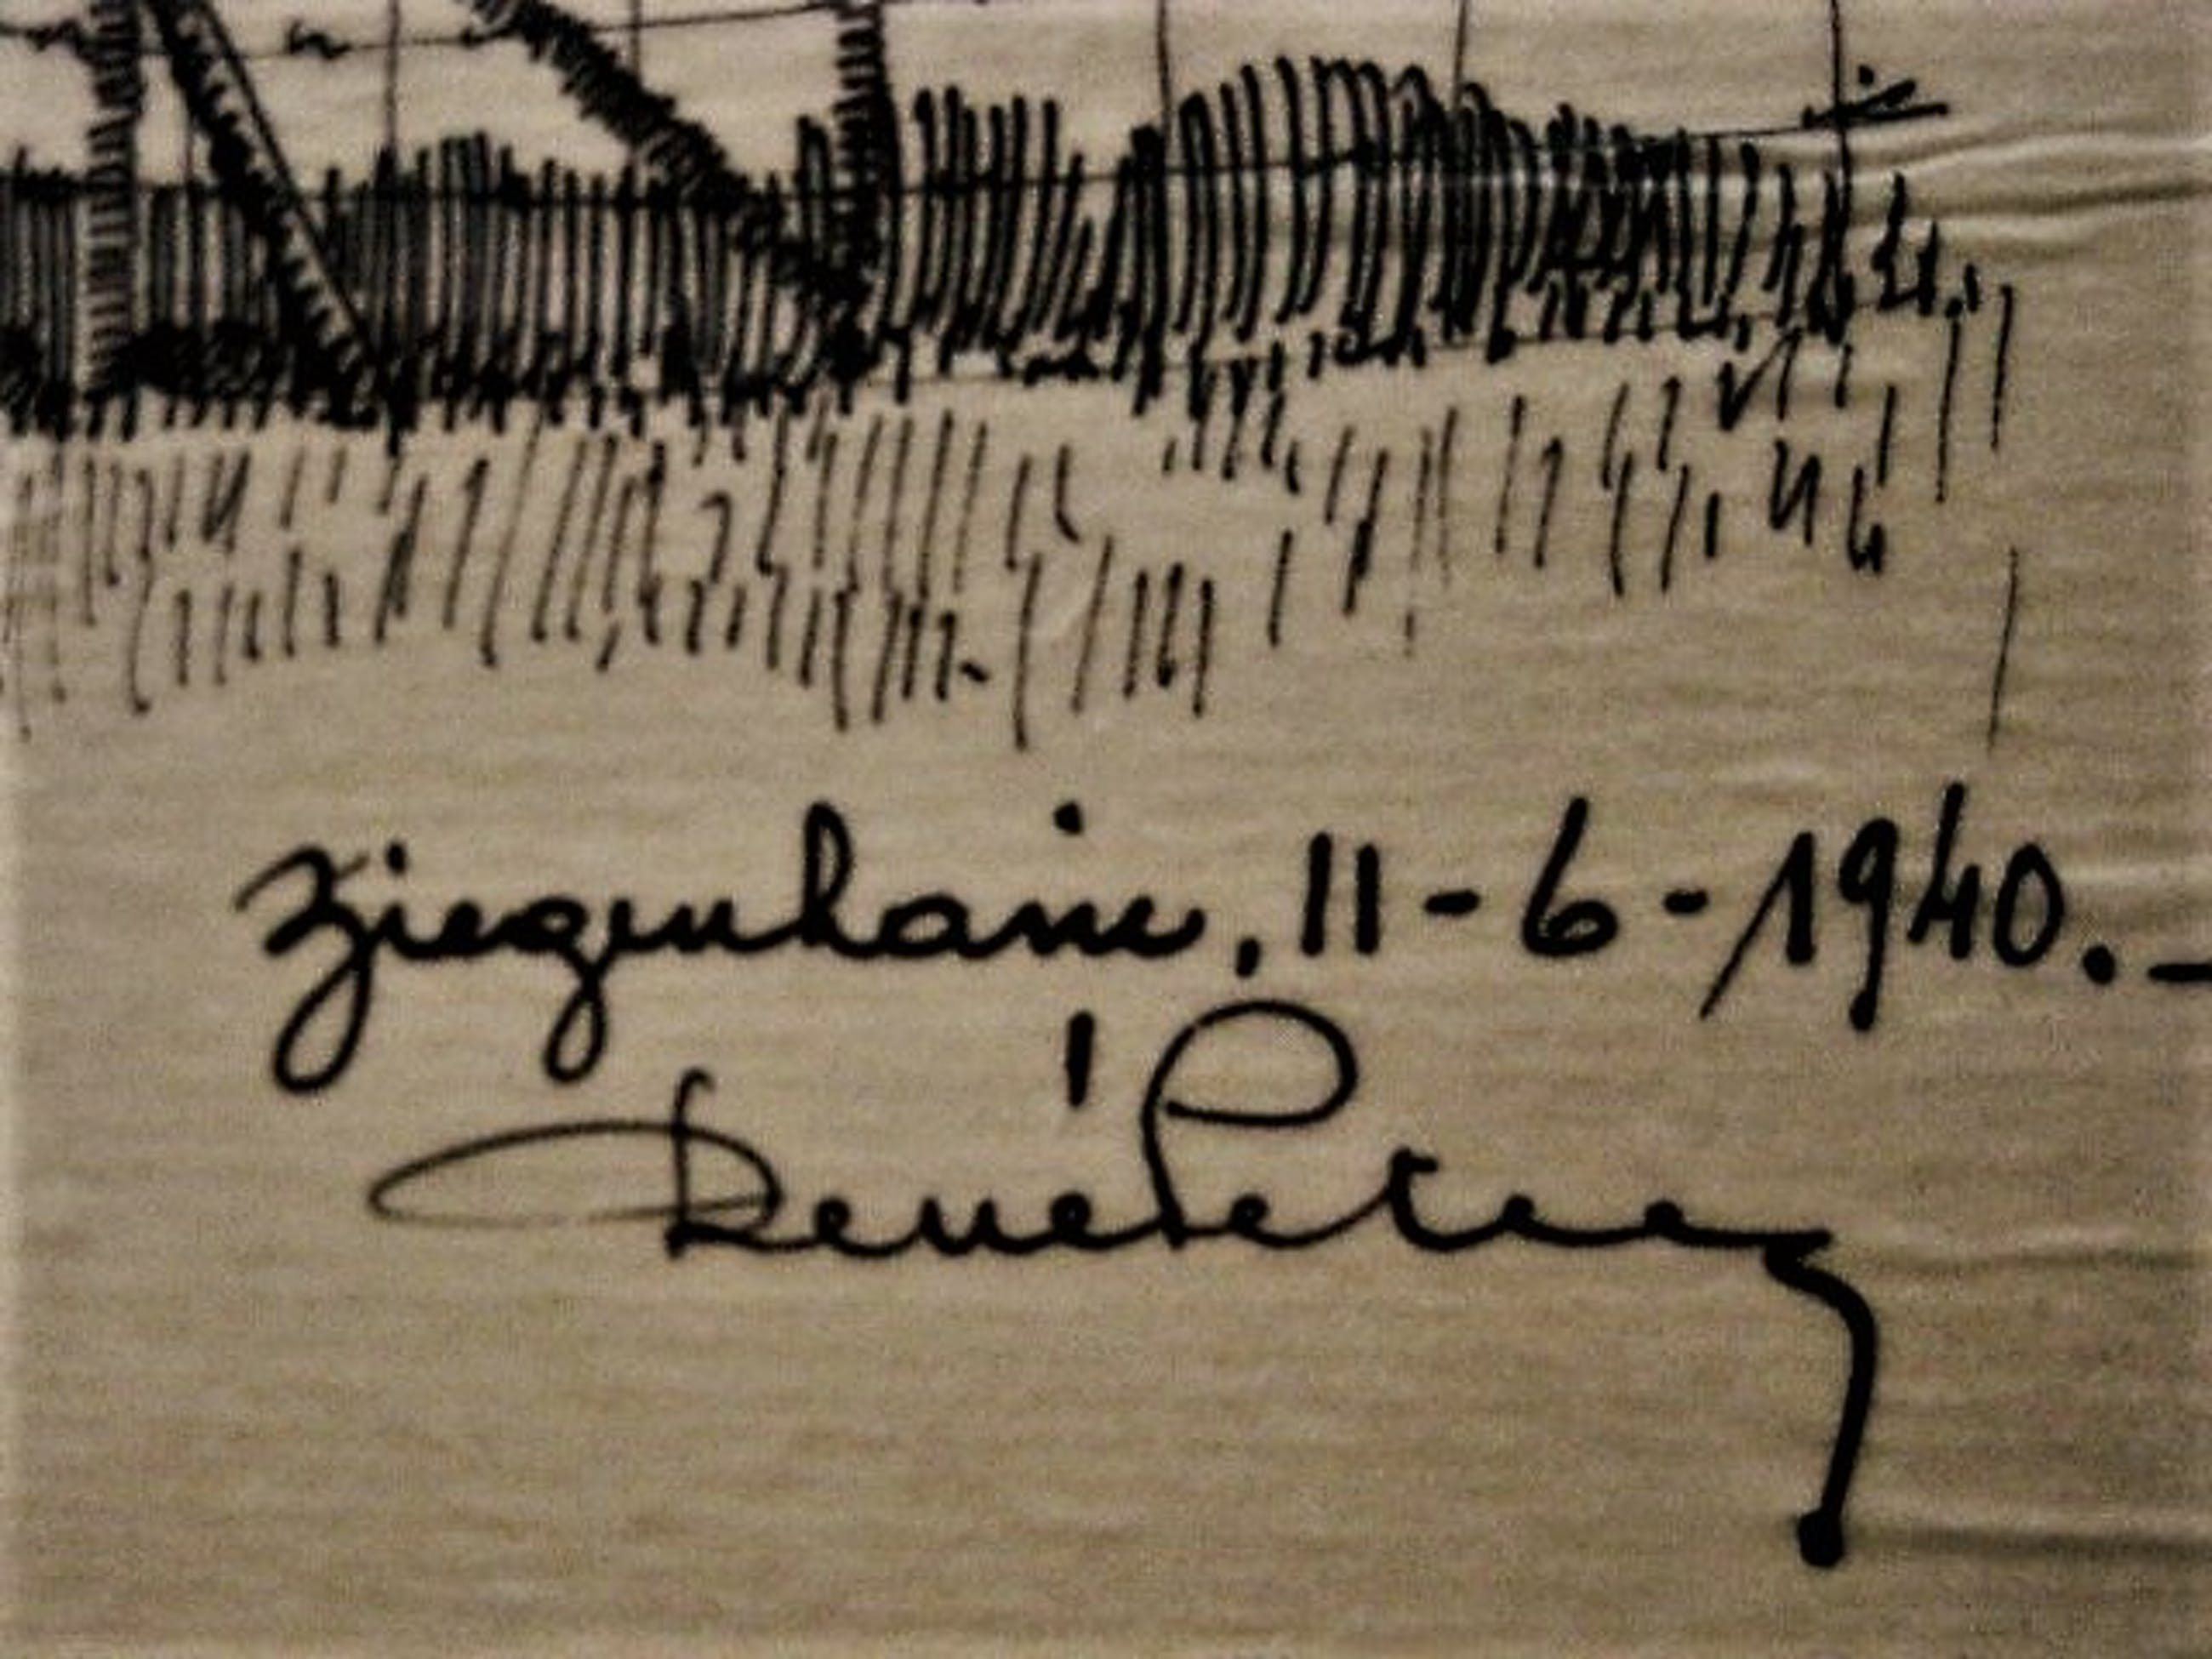 Ziegenhain, 11-6-1940.-
René